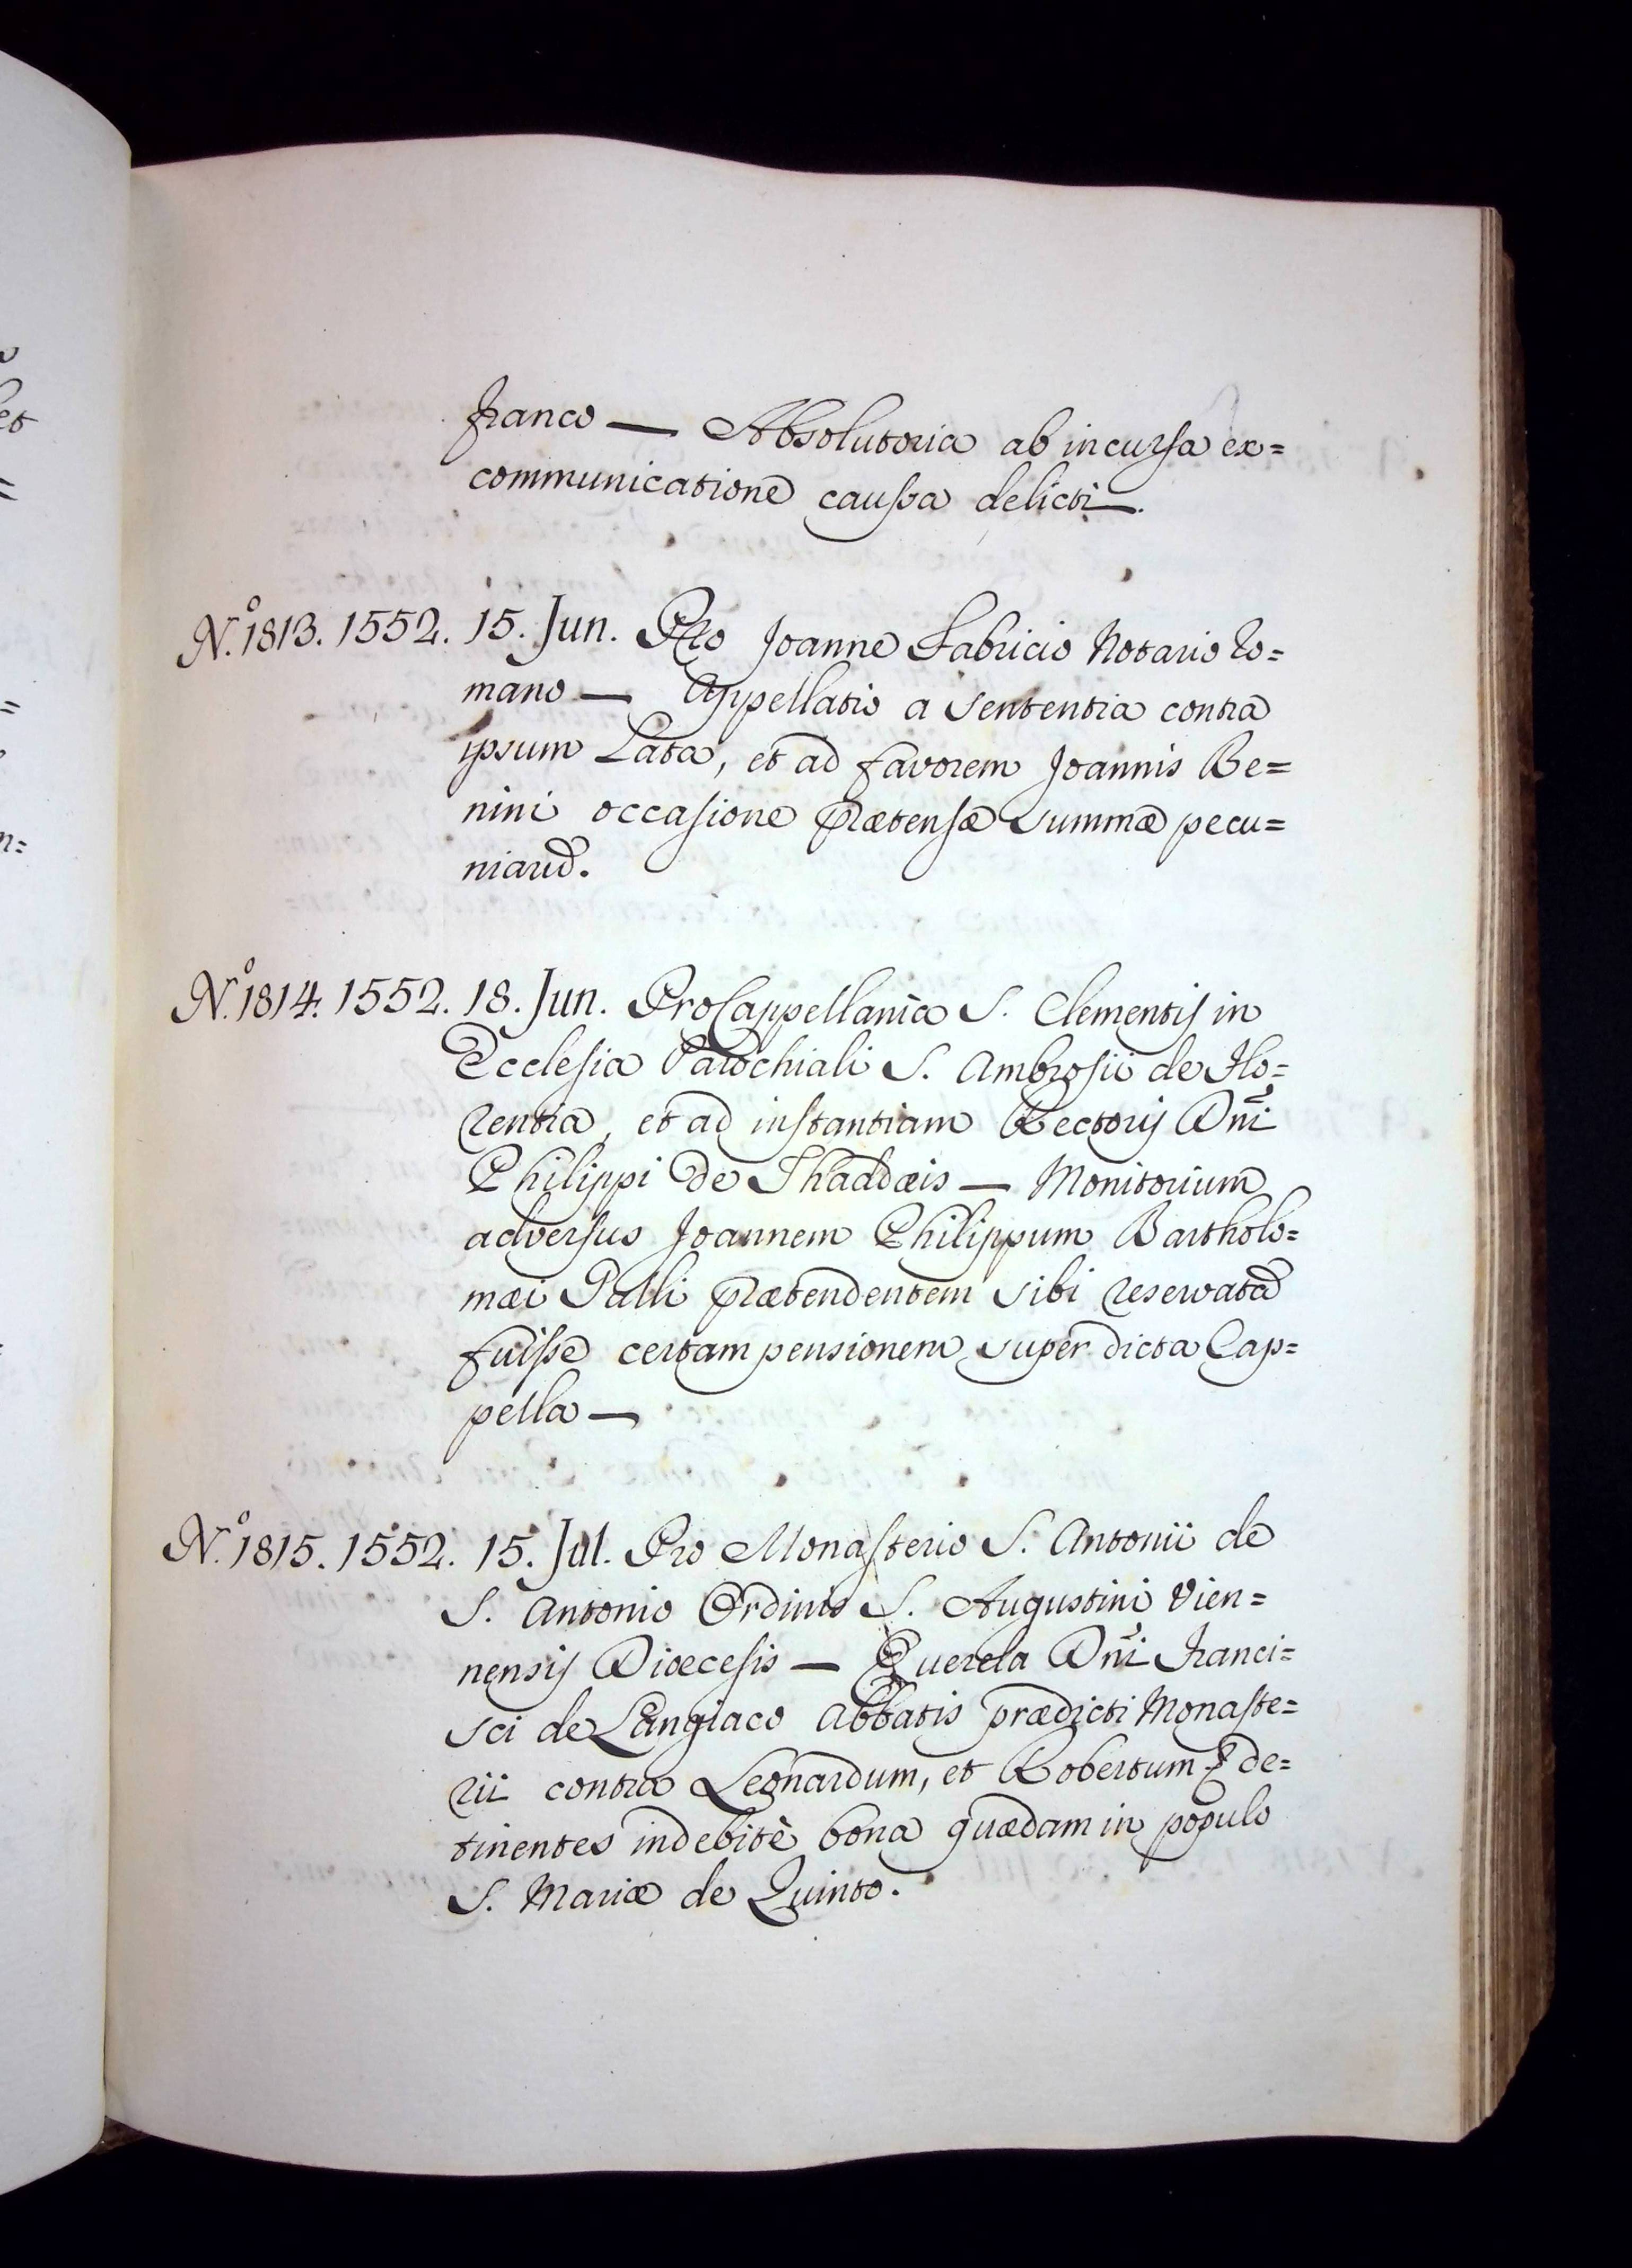 franco — Absolutoria ab incursa ex=
communicatione caussa delicti —.
N.º 1813. 1552. 15. Jun. Pro Joanne Fabricio Notario Ro=
mano — Appellatio a sententia contra
ipsum Lata, et ad favorem Joannis Be=
nini occasione prætensæ summæ pecu=
niarũ.
N.º 1814. 1552. 18. Jun. Pro Cappellania S. Clementis in
Ecclesia Parochiali S. Ambrosii de Flo=
rentia, et ad instantiam Rectoris Dñi
Philippi de Thaddæis — Monitorium
adversus Joannem Philippum Bartholo=
mæi Palli prætendentem sibi reservatã
fuisse certam pensionem super dicta Cap=
pella —
N.º 1815. 1552. 15. Jul. Pro Monasterio S. Antonii de
S. Antonio Ordinis S. Augustini Vien=
nensis Diœcesis — Querela Dñi Franci=
sci de Langiaco Abbatis prædicti Monaste=
rii contra Leonardum, et Robertum de=
tinentes indebitè bona quædam in populo
S. Mariæ de Quinto.